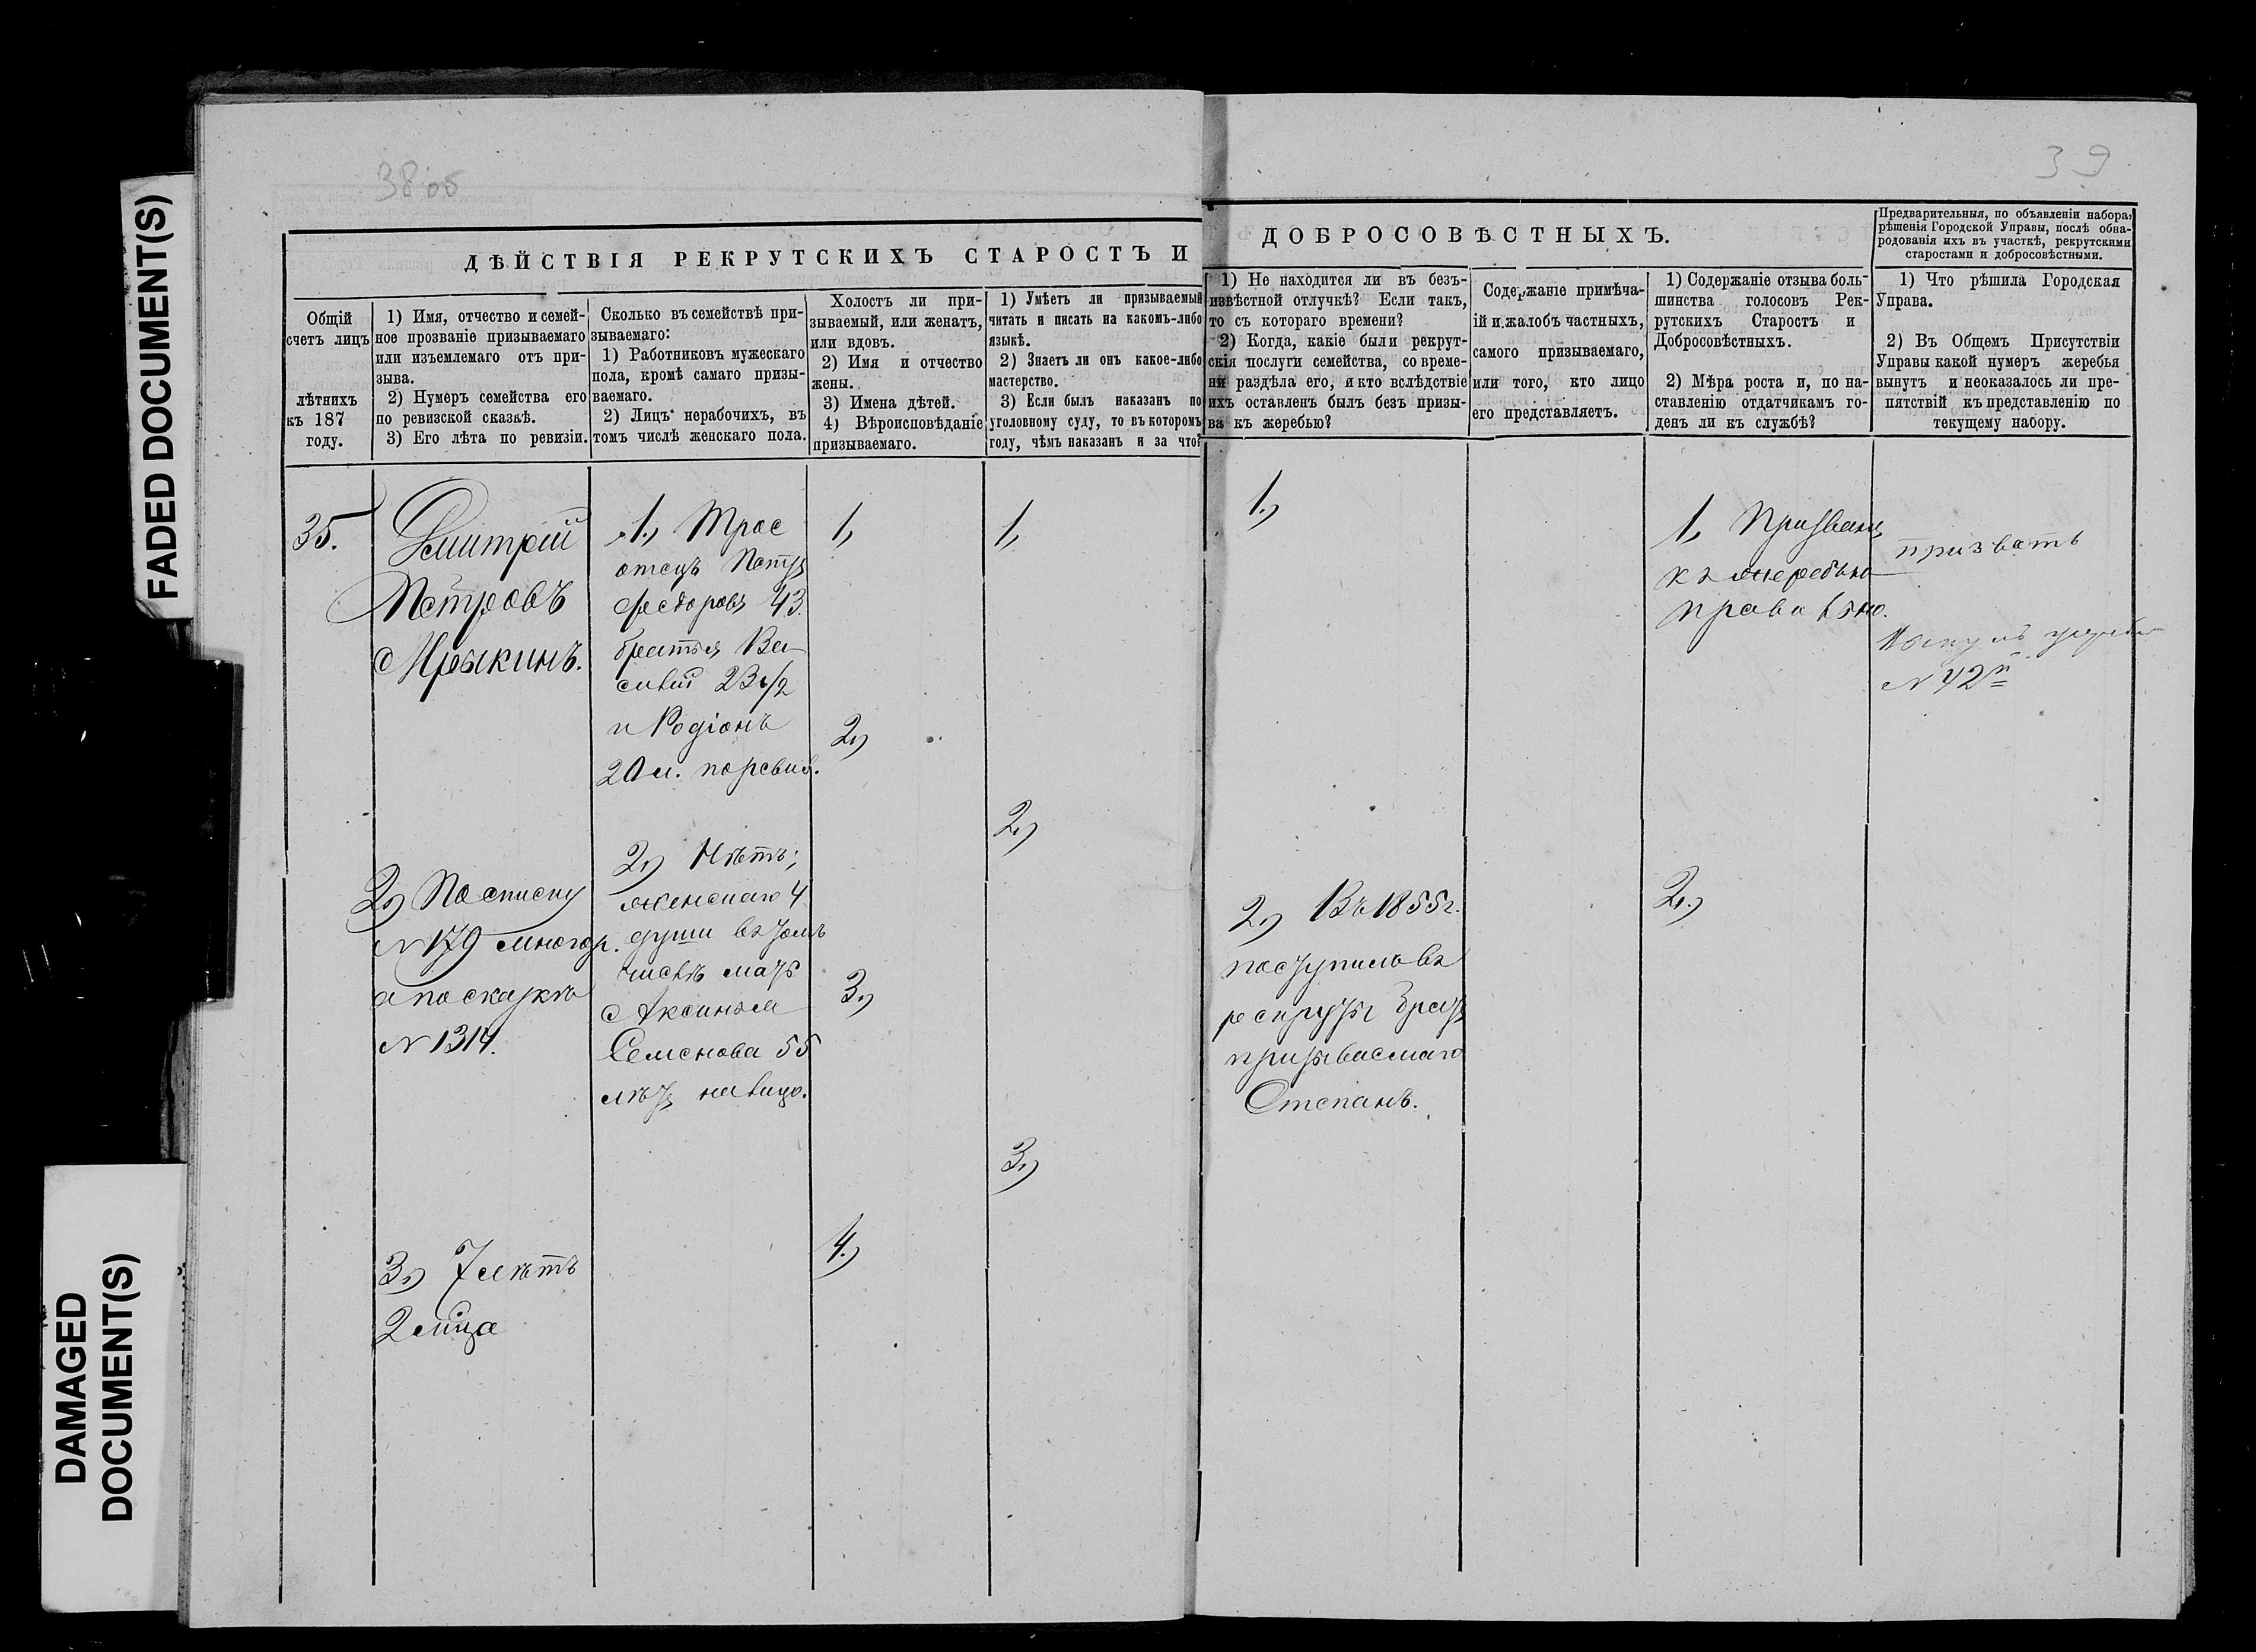 FADED DOCUMENT(S)
DAMAGED
DOCUMENT(S)
38 об
39
ДѢЙСТВІЯ РЕКРУТСКИХЪ СТАРОСТЪ И
ДОБРОСОВѢСТНЫХЪ.
Предварительныя, по объявленіи набора,
рѣшенія Городской Управы, послѣ обна-
родованія ихъ въ участкѣ, рекрутскими
старостами и добросовѣстными.
Общій
счетъ лицъ
лѣтнихъ
къ 187
году.
1) Имя, отчество и семей-
ное прозваніе призываемаго
или изъемлемаго отъ при-
зыва.
2) Нумеръ семейства его
по ревизской сказкѣ.
3) Его лѣта по ревизіи.
Сколько въ семействѣ при-
зываемаго:
1) Работниковъ мужескаго
пола, кромѣ самаго призы-
ваемаго.
2) Лицъ нерабочихъ, въ
томъ числѣ женскаго пола.
Холостъ ли при-
зываемый, или женатъ,
или вдовъ.
2) Имя и отчество
жены.
3) Имена дѣтей.
4) Вѣроисповѣданіе
призываемаго.
1) Умѣетъ ли призываемый
читать и писать на какомъ-либо
языкѣ.
2) Знаетъ ли онъ какое-либо
мастерство.
3) Если былъ наказанъ по
уголовному суду, то въ которомъ
году, чѣмъ наказанъ и за что?
1) Не находится ли въ безъ-
извѣстной отлучкѣ? Если такъ,
то съ котораго времени?
2) Когда, какіе были рекрут-
скія послуги семейства, со време-
ни раздѣла его, и кто вслѣдствіе
ихъ оставленъ былъ безъ призы-
ва къ жеребью?
Содержаніе примѣча-
ій и жалобъ частныхъ,
самого призываемаго,
или того, кто лицо
его представляетъ.
1) Содержаніе отзыва боль-
шинства голосовъ Рек-
рутскихъ Старостъ и
Добросовѣстныхъ.
2) Мѣра роста и, по на-
ставленію отдатчикамъ го-
денъ ли къ службѣ?
1) Что рѣшила Городская
Управа.
2) Въ Общемъ Присутствіи
Управы какой нумеръ жеребья
вынутъ и неоказалось ли пре-
пятствій къ представленію по
текущему набору.
35.
Дмитрій
Петровъ
Мрыкинъ.
2) По списку
N 179 многор.
а по сказкѣ
N 1314.
3) 7 лѣтъ
2 м͠ца
1) Трое
отецъ Петръ
Федоровъ 43.
братья Ва-
силій 23 1/2
и Родіонъ
20 л. по ревиз.
2) Нѣтъ;
женскаго 4
души въ томъ
числѣ мать
Аксинья
Семенова 55
лѣтъ на лицо.
1,
2)
3)
4.)
1,
2)
3)
1.)
2) Въ 1855 г.
поступилъ въ
рекруты братъ
призываемаго
Степанъ.
1, Призвать
къ жеребью
правильно.
2.)
призвать
N 42й